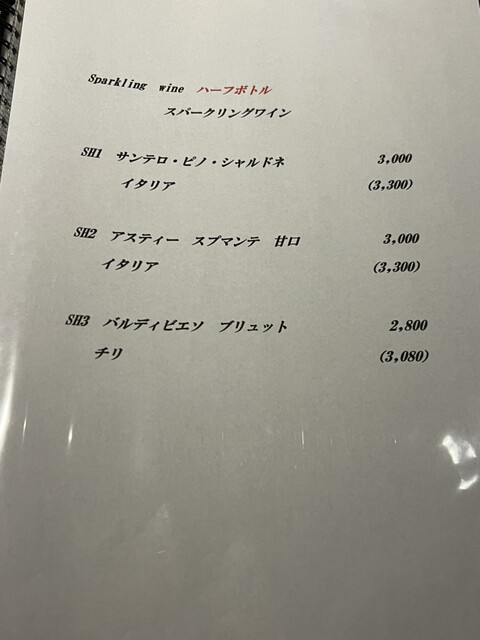 Sparkling wine ハーフボトル
スパークリングワイン
SH1 サンテロ・ピノ・シャルドネ 3,000
イタリア (3,300)
SH2 アスティー スプマンテ 甘口 3,000
イタリア (3,300)
SH3 バルディビエソ ブリュット 2,800
チリ (3,080)